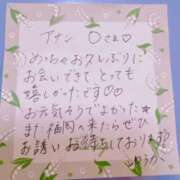 アナン Oさま♡
めっちゃお久しぶりに
お会いできて とっても
嬉しかったです♡♡
お元気そうでよかった★
また 福岡へ来たらぜひ
お誘いお待ちしております